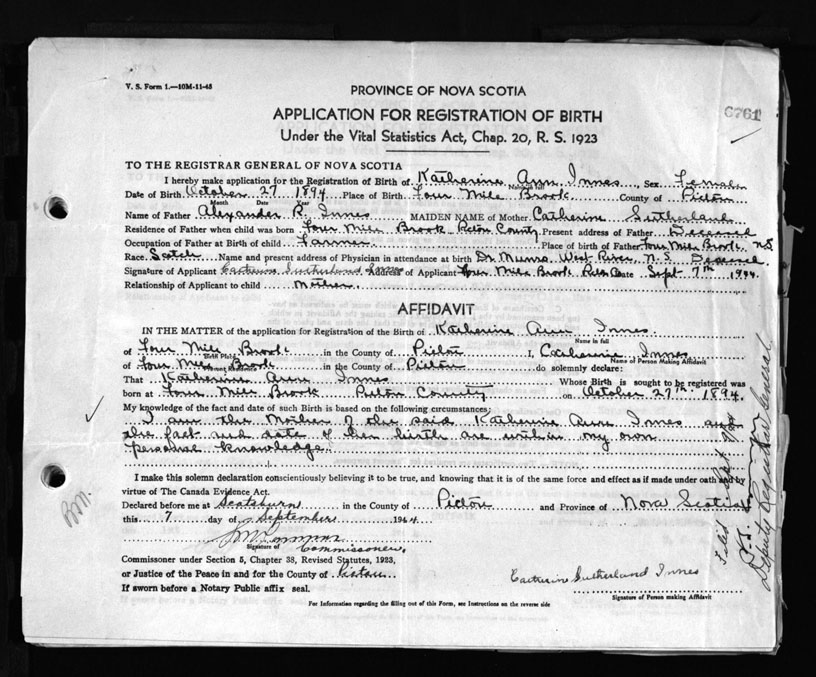 V. S. Form 1.—10M-11-43
PROVINCE OF NOVA SCOTIA
6761
APPLICATION FOR REGISTRATION OF BIRTH
Under the Vital Statistics Act, Chap. 20, R. S. 1923
TO THE REGISTRAR GENERAL OF NOVA SCOTIA
I hereby make application for the Registration of Birth of Katherine Ann Innes, Sex Female
Name in full
Date of Birth October 27 1894 Place of Birth Four Mile Brook County of Pictou
Month Date Year
Name of Father Alexander R. Innes MAIDEN NAME of Mother Catherine Sutherland
Residence of Father when child was born Four Mile Brook Pictou County Present address of Father Deceased
Occupation of Father at Birth of child Farmer Place of birth of Father Four Mile Brook NS
Race Scotch Name and present address of Physician in attendance at birth Dr Munro, West River, N. S. Deceased
Signature of Applicant Catherine Sutherland Innes Address of Applicant Four Mile Brook Pictou Co Date Sept 7th 1944.
Relationship of Applicant to child Mother.
AFFIDAVIT
IN THE MATTER of the application for Registration of the Birth of Katherine Ann Innes
Name in full
of Four Mile Brook in the County of Pictou I, Catherine Innes
Birth Place Name of Person Making Affidavit
of Four Mile Brook in the County of Pictou do solemnly declare:
Present Residence
That Katherine Ann Innes Whose Birth is sought to be registered was
born at Four Mile Brook Pictou County on October 27th 1894.
My knowledge of the fact and date of such Birth is based on the following circumstances:
I am the Mother of the said Katherine Ann Innes and
the fact and date of her birth are within my own
personal knowledge.
I make this solemn declaration conscientiously believing it to be true, and knowing that it is of the same force and effect as if made under oath and by
virtue of The Canada Evidence Act.
Declared before me at Scotsburn in the County of Pictou and Province of Nova Scotia
this 7 day of September 1944
Signature of Commissioner.
Commissioner under Section 5, Chapter 38, Revised Statutes, 1923,
or Justice of the Peace in and for the County of Pictou
If sworn before a Notary Public affix seal.
Catherine Sutherland Innes
Signature of Person making Affidavit
For Information regarding the filling out of this Form, see Instructions on the reverse side
Filed Sept 9/44
Deputy Registrar General